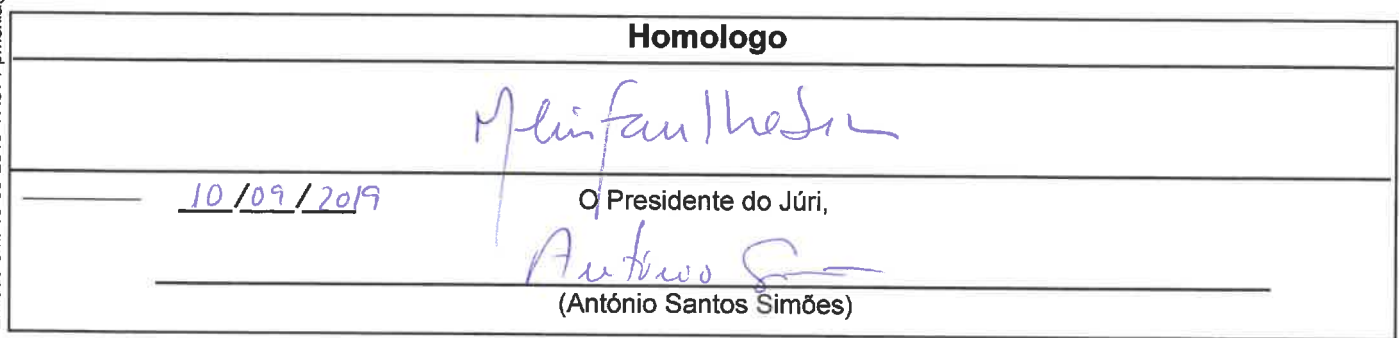 Homologo
10/09/2019
O Presidente do Júri,
António
(António Santos Simões)